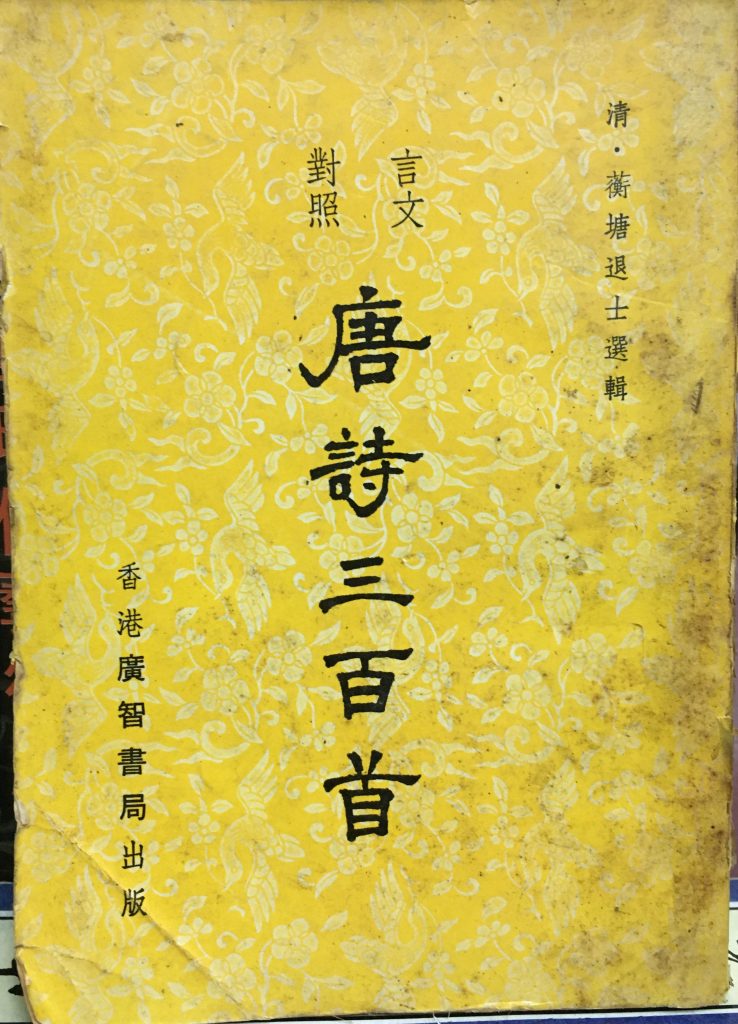 清·蘅塘退士選輯
言文
對照
唐詩三百首
香港廣智書局出版